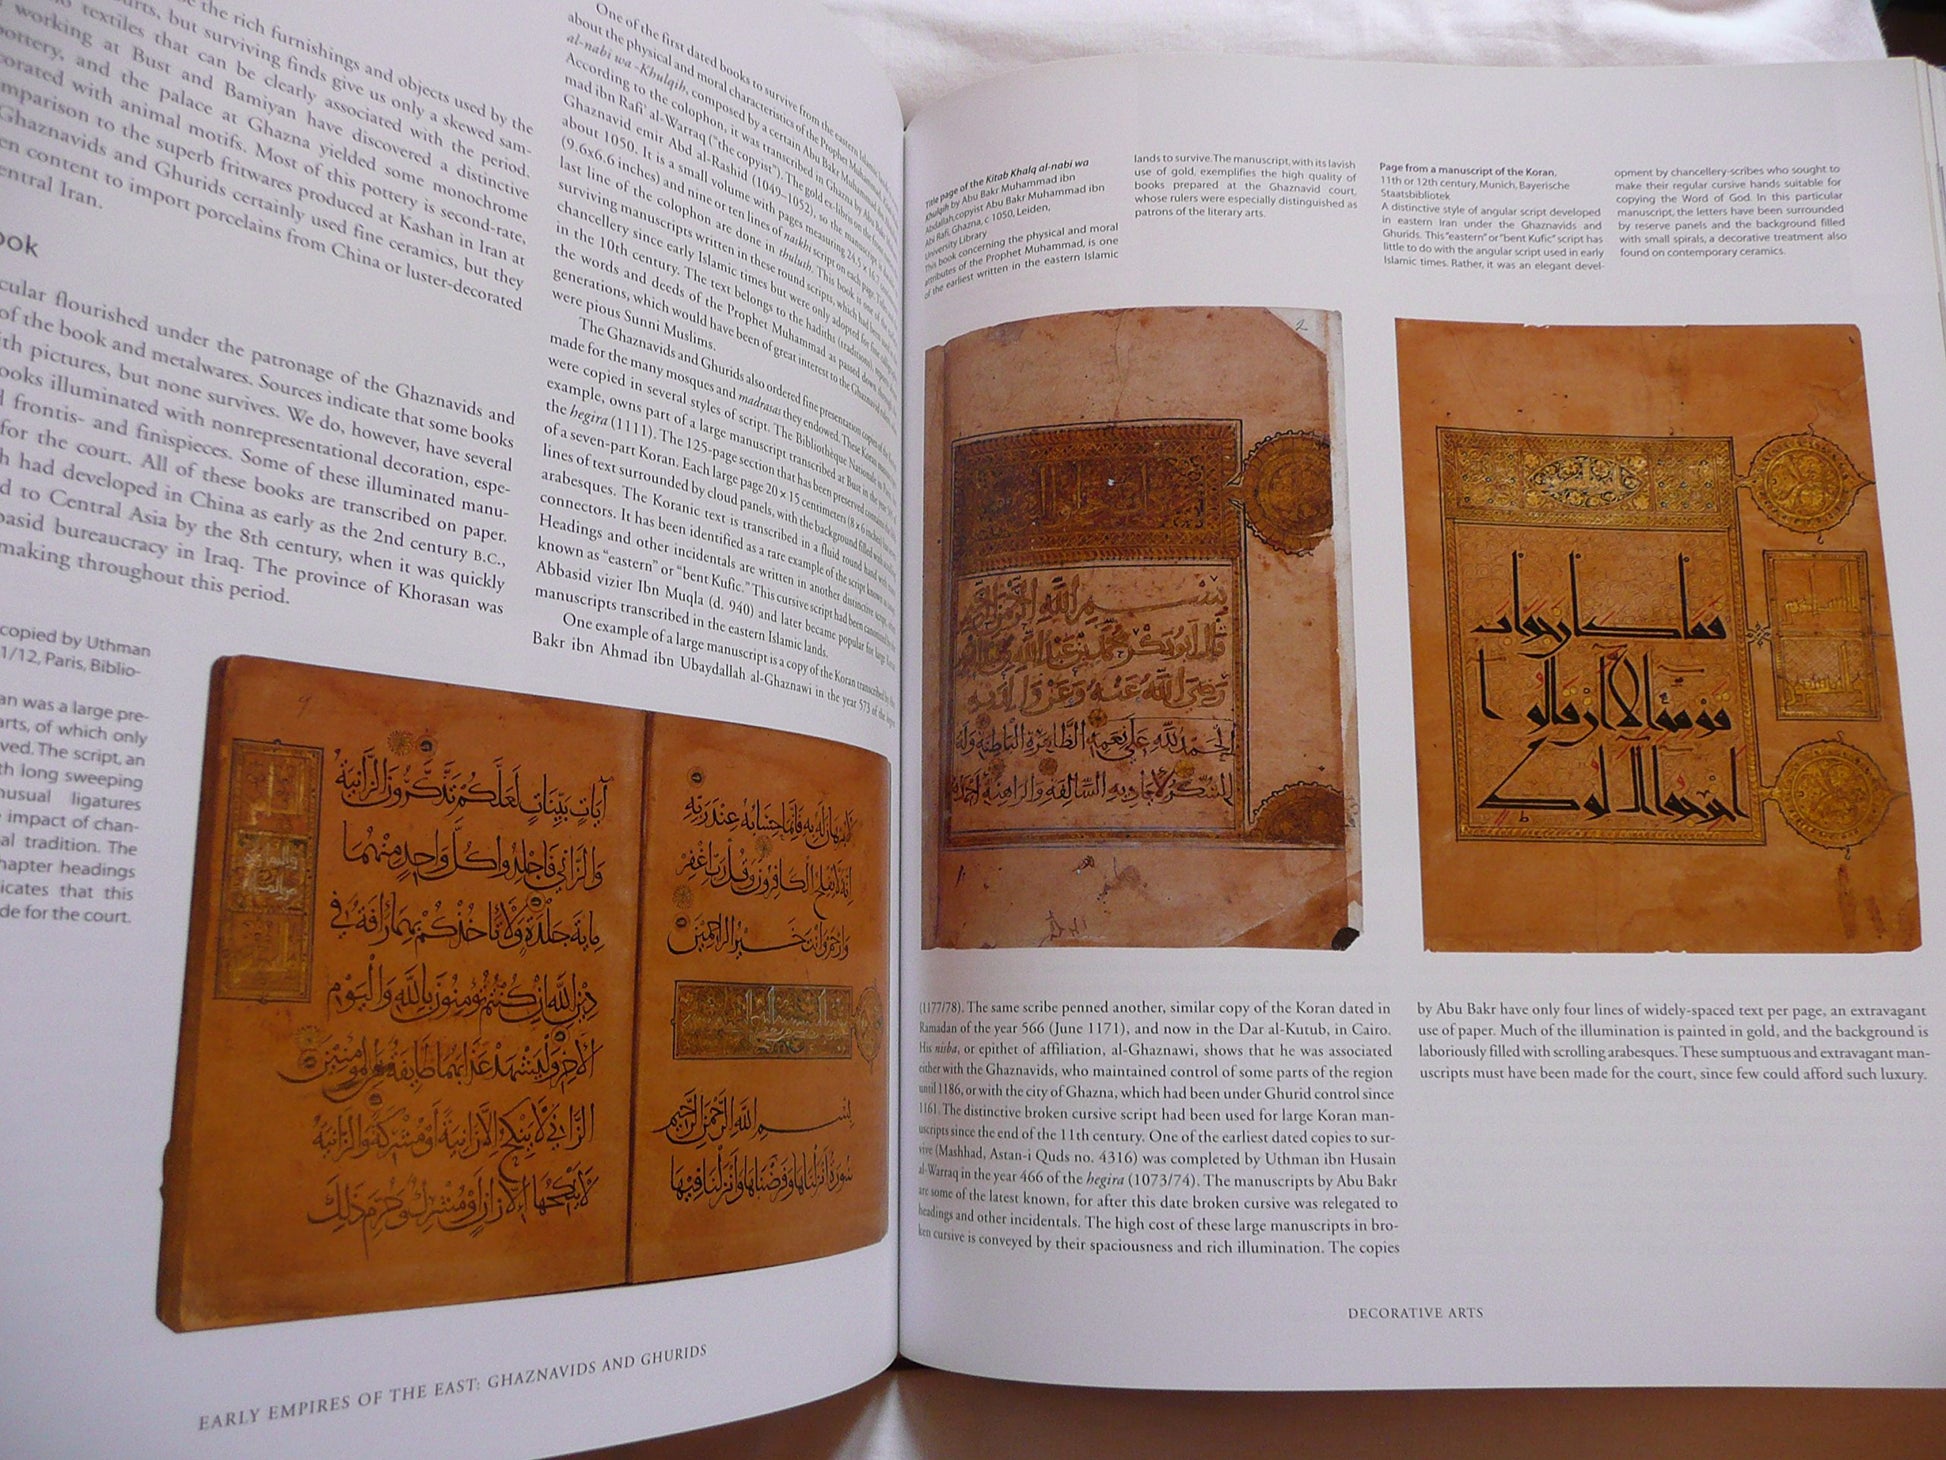 the rich furnishings and objects used by the
but surviving finds give us only a skewed sam-
textiles that can be clearly associated with the period.
working at Bust and Bamiyan have discovered a distinctive
pottery, and the palace at Ghazna yielded some monochrome
orated with animal motifs. Most of this pottery is second-rate,
mparison to the superb fritwares produced at Kashan in Iran at
Ghaznavids and Ghurids certainly used fine ceramics, but they
en content to import porcelains from China or luster-decorated
entral Iran.
ook
cular flourished under the patronage of the Ghaznavids and
of the book and metalwares. Sources indicate that some books
ith pictures, but none survives. We do, however, have several
ooks illuminated with nonrepresentational decoration, espe-
d frontis- and finispieces. Some of these illuminated manu-
for the court. All of these books are transcribed on paper.
h had developed in China as early as the 2nd century B.C.,
d to Central Asia by the 8th century, when it was quickly
basid bureaucracy in Iraq. The province of Khorasan was
making throughout this period.
copied by Uthman
1/12, Paris, Biblio-
an was a large pre-
arts, of which only
ved. The script, an
th long sweeping
nusual ligatures
impact of chan-
al tradition. The
hapter headings
icates that this
de for the court.
One of the first dated books to survive from the eastern Islamic
about the physical and moral characteristics of the Prophet Muhammad,
al-nabi wa-Khulqih, composed by a certain Abu Bakr Muhammad
According to the colophon, it was transcribed in Ghazna by Abu Bakr
mad ibn Rafi' al-Warraq ("the copyist"). The gold ex-libris on the
Ghaznavid emir Abd al-Rashid (1049–1052), so the manuscript
about 1050. It is a small volume with pages measuring 24.5 x 16.7
(9.6x6.6 inches) and nine or ten lines of naskhi script on each page.
last line of the colophon are done in thuluth. This book is one of the
surviving manuscripts written in these round scripts, which had been used
chancellery since early Islamic times but were only adopted for fine
in the 10th century. The text belongs to the hadiths (traditions),
the words and deeds of the Prophet Muhammad as passed down through
generations, which would have been of great interest to the Ghaznavid
were pious Sunni Muslims.
The Ghaznavids and Ghurids also ordered fine presentation copies of the
made for the many mosques and madrasas they endowed. These Koran
were copied in several styles of script. The Bibliothèque Nationale in
example, owns part of a large manuscript transcribed at Bust in the
the hegira (1111). The 125-page section that has been preserved contains the
of a seven-part Koran. Each large page 20 x 15 centimeters (8 x 6 inches)
lines of text surrounded by cloud panels, with the background filled with
arabesques. The Koranic text is transcribed in a fluid round hand with
connectors. It has been identified as a rare example of the script known as
Headings and other incidentals are written in another distinctive script,
known as "eastern" or "bent Kufic." This cursive script had been canonized by the
Abbasid vizier Ibn Muqla (d. 940) and later became popular for large
manuscripts transcribed in the eastern Islamic lands.
One example of a large manuscript is a copy of the Koran transcribed by
Bakr ibn Ahmad ibn Ubaydallah al-Ghaznawi in the year 573 of the hegira
آيات بينات لعلكم تذكرون الزانية
والزاني فاجلدوا كل واحد منهما
مائة جلدة ولا تأخذكم بهما رأفة في
دين الله إن كنتم تؤمنون بالله واليوم
الآخر وليشهد عذابهما طائفة من المؤمنين
الزاني لا ينكح إلا زانية أو مشركة والزانية
لا ينكحها إلا زان أو مشرك وحرم ذلك
لا برهان له به فإنما حسابه عند ربه
إنه لا يفلح الكافرون وقل رب اغفر
وارحم وأنت خير الراحمين
بسم الله الرحمن الرحيم
سورة أنزلناها وفرضناها وأنزلنا فيها
EARLY EMPIRES OF THE EAST: GHAZNAVIDS AND GHURIDS
Title page of the Kitab Khalq al-nabi wa
Khulqih by Abu Bakr Muhammad ibn
Abdallah, copyist Abu Bakr Muhammad ibn
Abi Rafi, Ghazna, c 1050, Leiden,
University Library
This book concerning the physical and moral
attributes of the Prophet Muhammad, is one
of the earliest written in the eastern Islamic
lands to survive. The manuscript, with its lavish
use of gold, exemplifies the high quality of
books prepared at the Ghaznavid court,
whose rulers were especially distinguished as
patrons of the literary arts.
Page from a manuscript of the Koran,
11th or 12th century, Munich, Bayerische
Staatsbibliotek
A distinctive style of angular script developed
in eastern Iran under the Ghaznavids and
Ghurids. This "eastern" or "bent Kufic" script has
little to do with the angular script used in early
Islamic times. Rather, it was an elegant devel-
opment by chancellery-scribes who sought to
make their regular cursive hands suitable for
copying the Word of God. In this particular
manuscript, the letters have been surrounded
by reserve panels and the background filled
with small spirals, a decorative treatment also
found on contemporary ceramics.
2
بسم الله الرحمن الرحيم
قال أبو بكر محمد بن عبد الله
رضي الله عنه وعن والديه
الحمد لله على نعمه الظاهرة الباطنة وله
الشكر لأياديه السالفة والراهنة أحمده
فما كان جواب
قومه إلا أن قالوا ا
اخرجوا آل لوط
(1177/78). The same scribe penned another, similar copy of the Koran dated in
Ramadan of the year 566 (June 1171), and now in the Dar al-Kutub, in Cairo.
His nisba, or epithet of affiliation, al-Ghaznawi, shows that he was associated
either with the Ghaznavids, who maintained control of some parts of the region
until 1186, or with the city of Ghazna, which had been under Ghurid control since
1161. The distinctive broken cursive script had been used for large Koran man-
uscripts since the end of the 11th century. One of the earliest dated copies to sur-
vive (Mashhad, Astan-i Quds no. 4316) was completed by Uthman ibn Husain
al-Warraq in the year 466 of the hegira (1073/74). The manuscripts by Abu Bakr
are some of the latest known, for after this date broken cursive was relegated to
headings and other incidentals. The high cost of these large manuscripts in bro-
ken cursive is conveyed by their spaciousness and rich illumination. The copies
by Abu Bakr have only four lines of widely-spaced text per page, an extravagant
use of paper. Much of the illumination is painted in gold, and the background is
laboriously filled with scrolling arabesques. These sumptuous and extravagant man-
uscripts must have been made for the court, since few could afford such luxury.
DECORATIVE ARTS